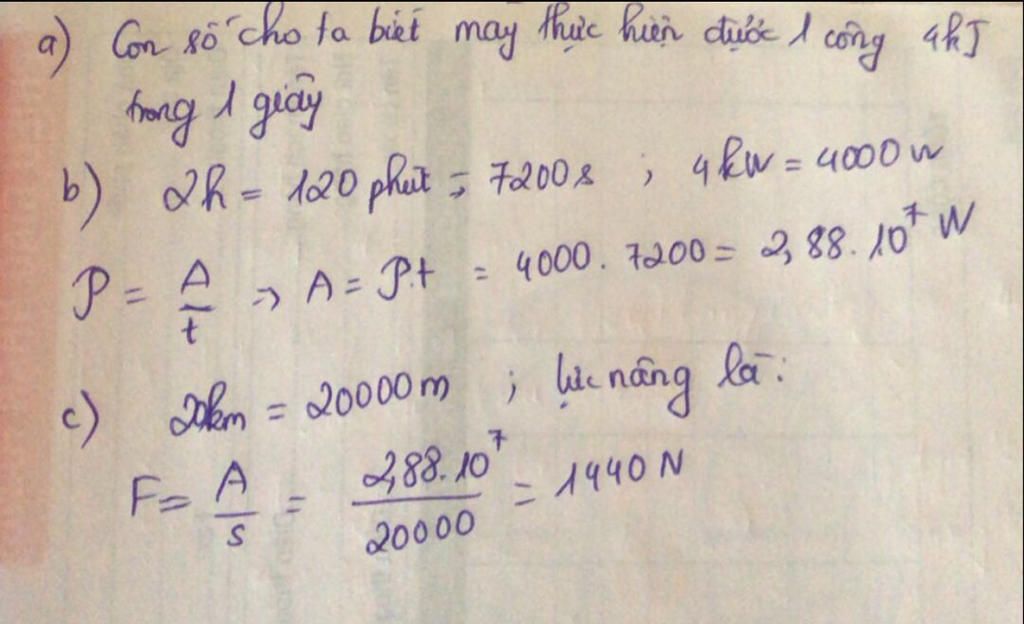 a) Con số cho ta biết máy thực hiện được 1 công 4kJ
trong 1 giây
b) 2h = 120 phút = 7200s ; 4kW = 4000W
P = A/t → A = P.t = 4000. 7200 = 2,88. 10⁷ W
c) 20km = 20000m ; lực nâng là:
F = A/s = 2,88.10⁷/20000 = 1440 N